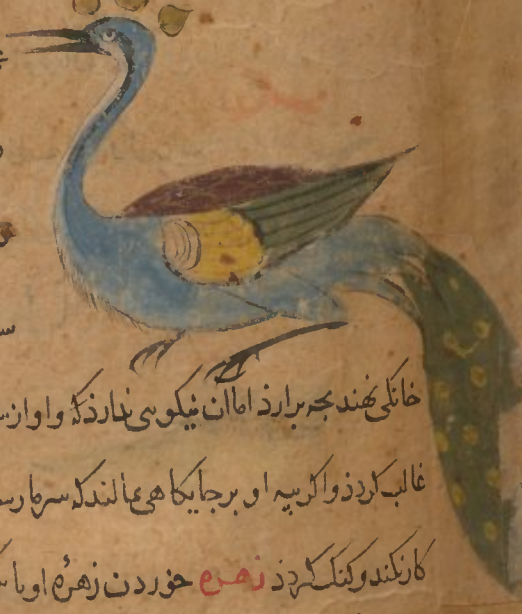 خانکی نهند بجه برارذ اما ان نیکوی ندارذ که و اواز
غالب کردذ و اکر پیه او بر جایکاهی مالند که سرما
کار نکند و کنک کردذ زهره خوردن زهرهٔ او با